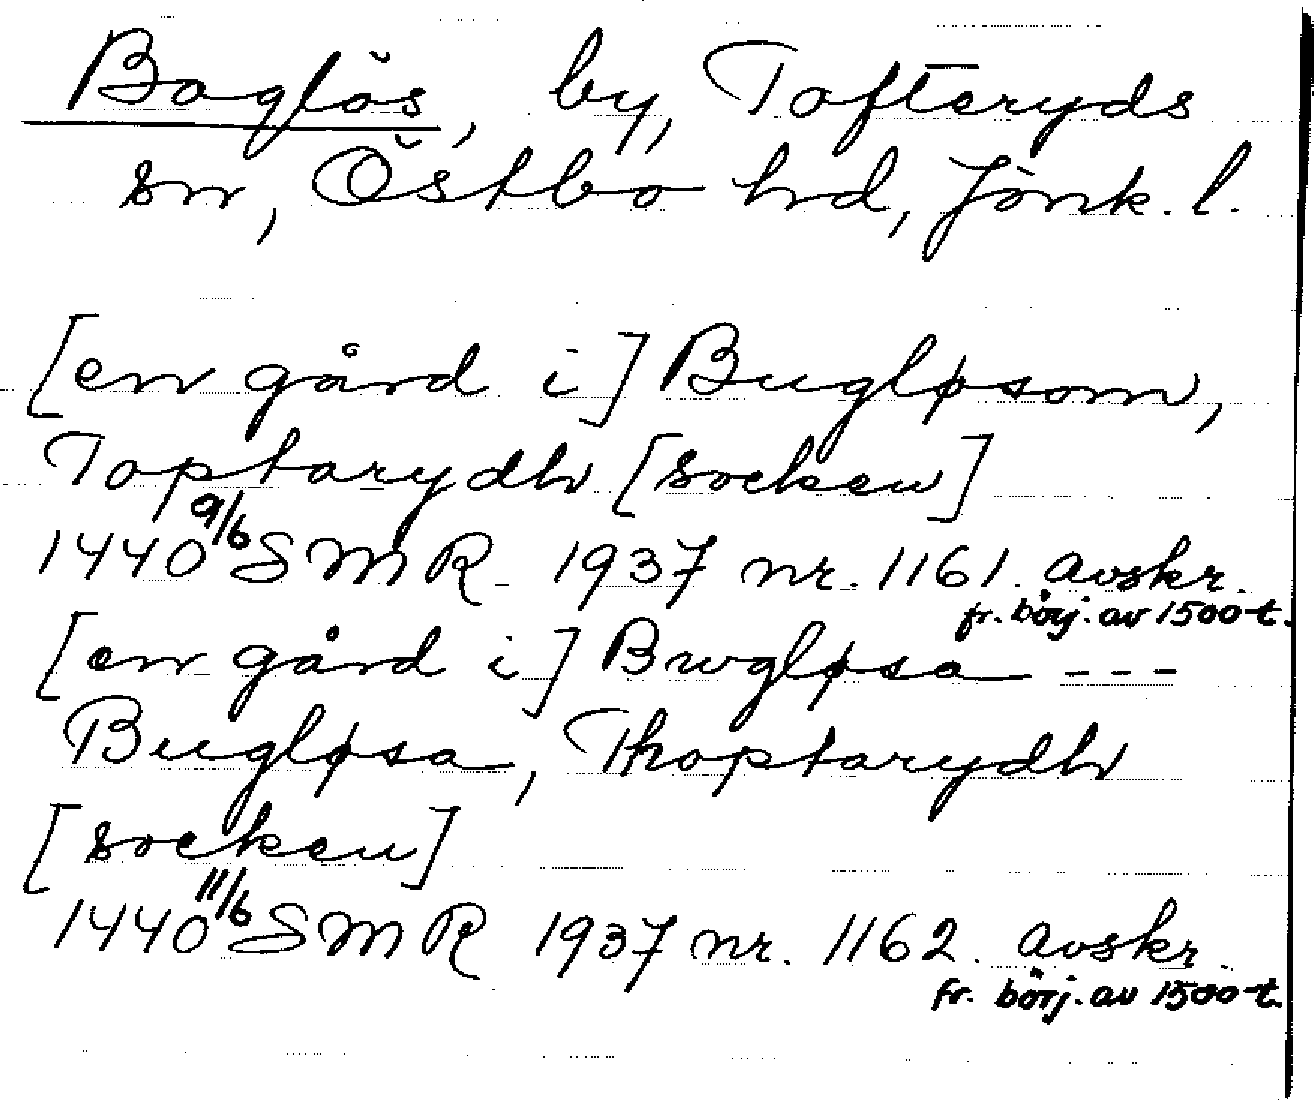 Boglös, by, Tofteryds
sn, Östbo hd, Jönk. l.
[en gård i] Bugløsom,
Toptarydh [socken]
1440 9/6 SMR 1937 nr. 1161. Avskr.
fr. börj. av 1500-t.
[en gård i] Bwgløsa ---
Bugløsa, Thoptarydh
[socken]
1440 11/6 SMR 1937 nr. 1162. Avskr.
fr. börj. av 1500-t.